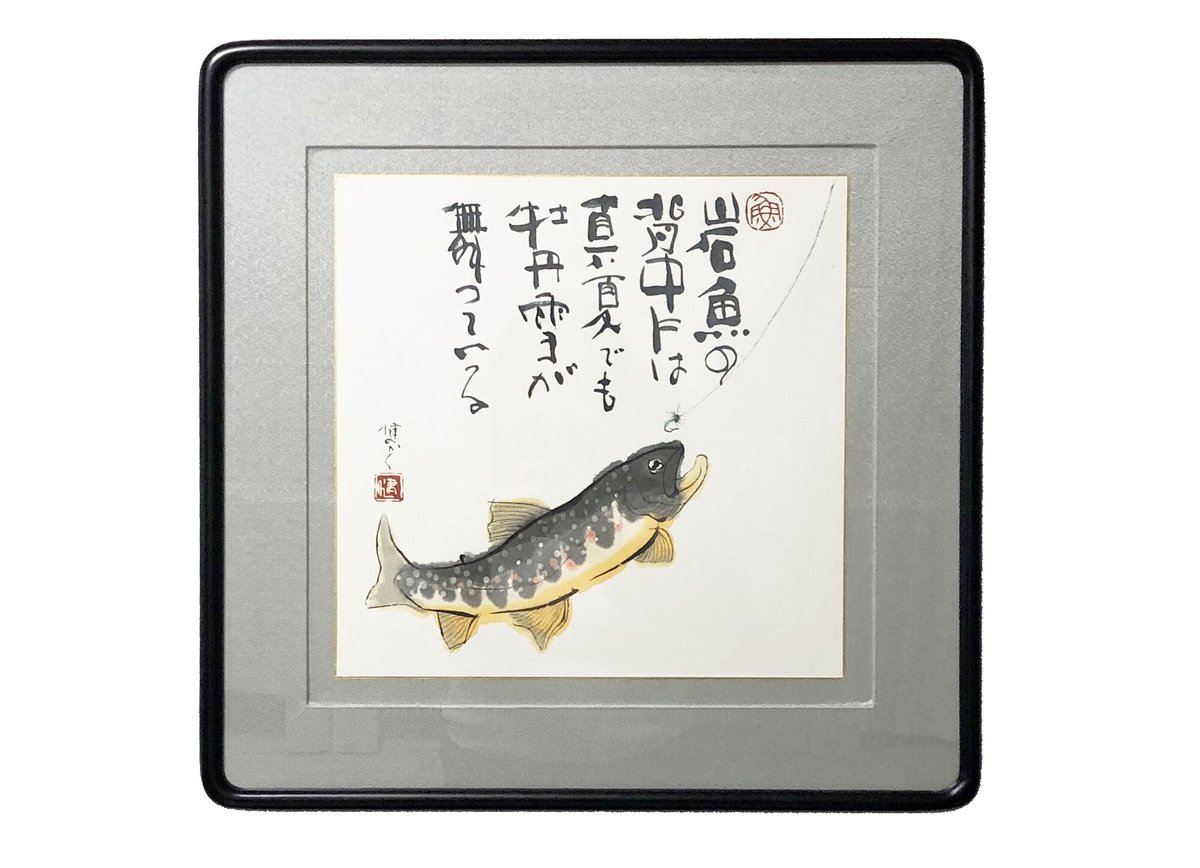 岩魚の
背中には
真夏でも
牡丹雪が
舞っている
健かく